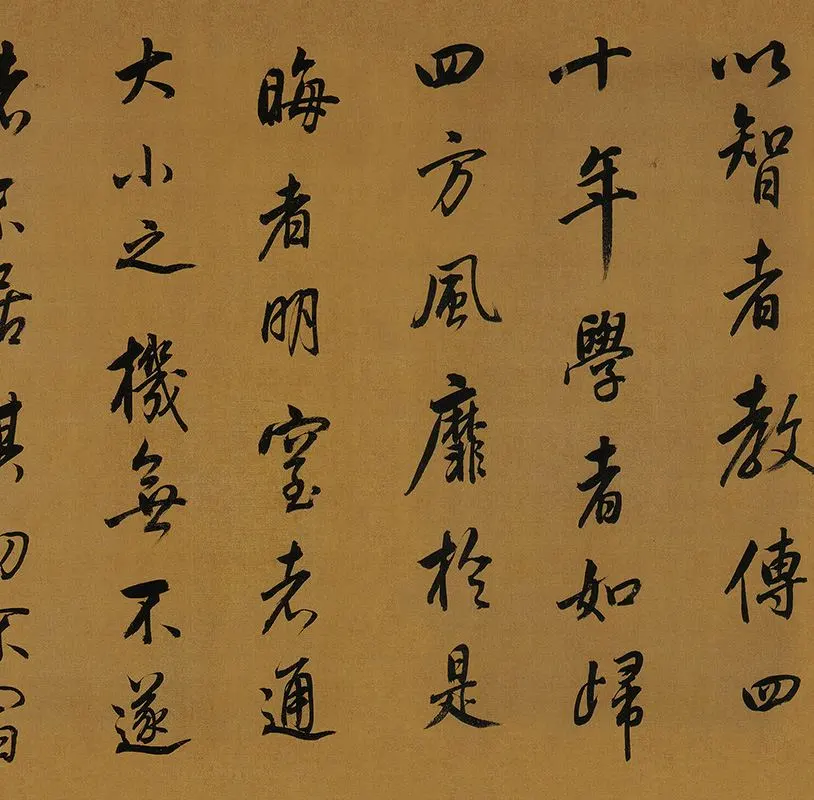 以智者教傳四
十年學者如歸
四方風靡於是
晦者明窒者通
大小之機無不遂